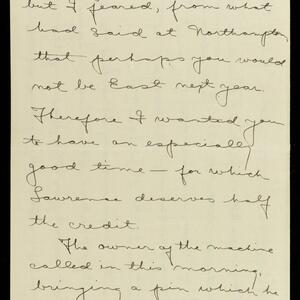 but I feared, from what
had said at Northampton,
that perhaps you would
not be East next year.
Therefore I wanted you
to have an especially
good time — for which
Lawrence deserves half
the credit.
The owner of the machine
called in this morning,
bringing a pin which he